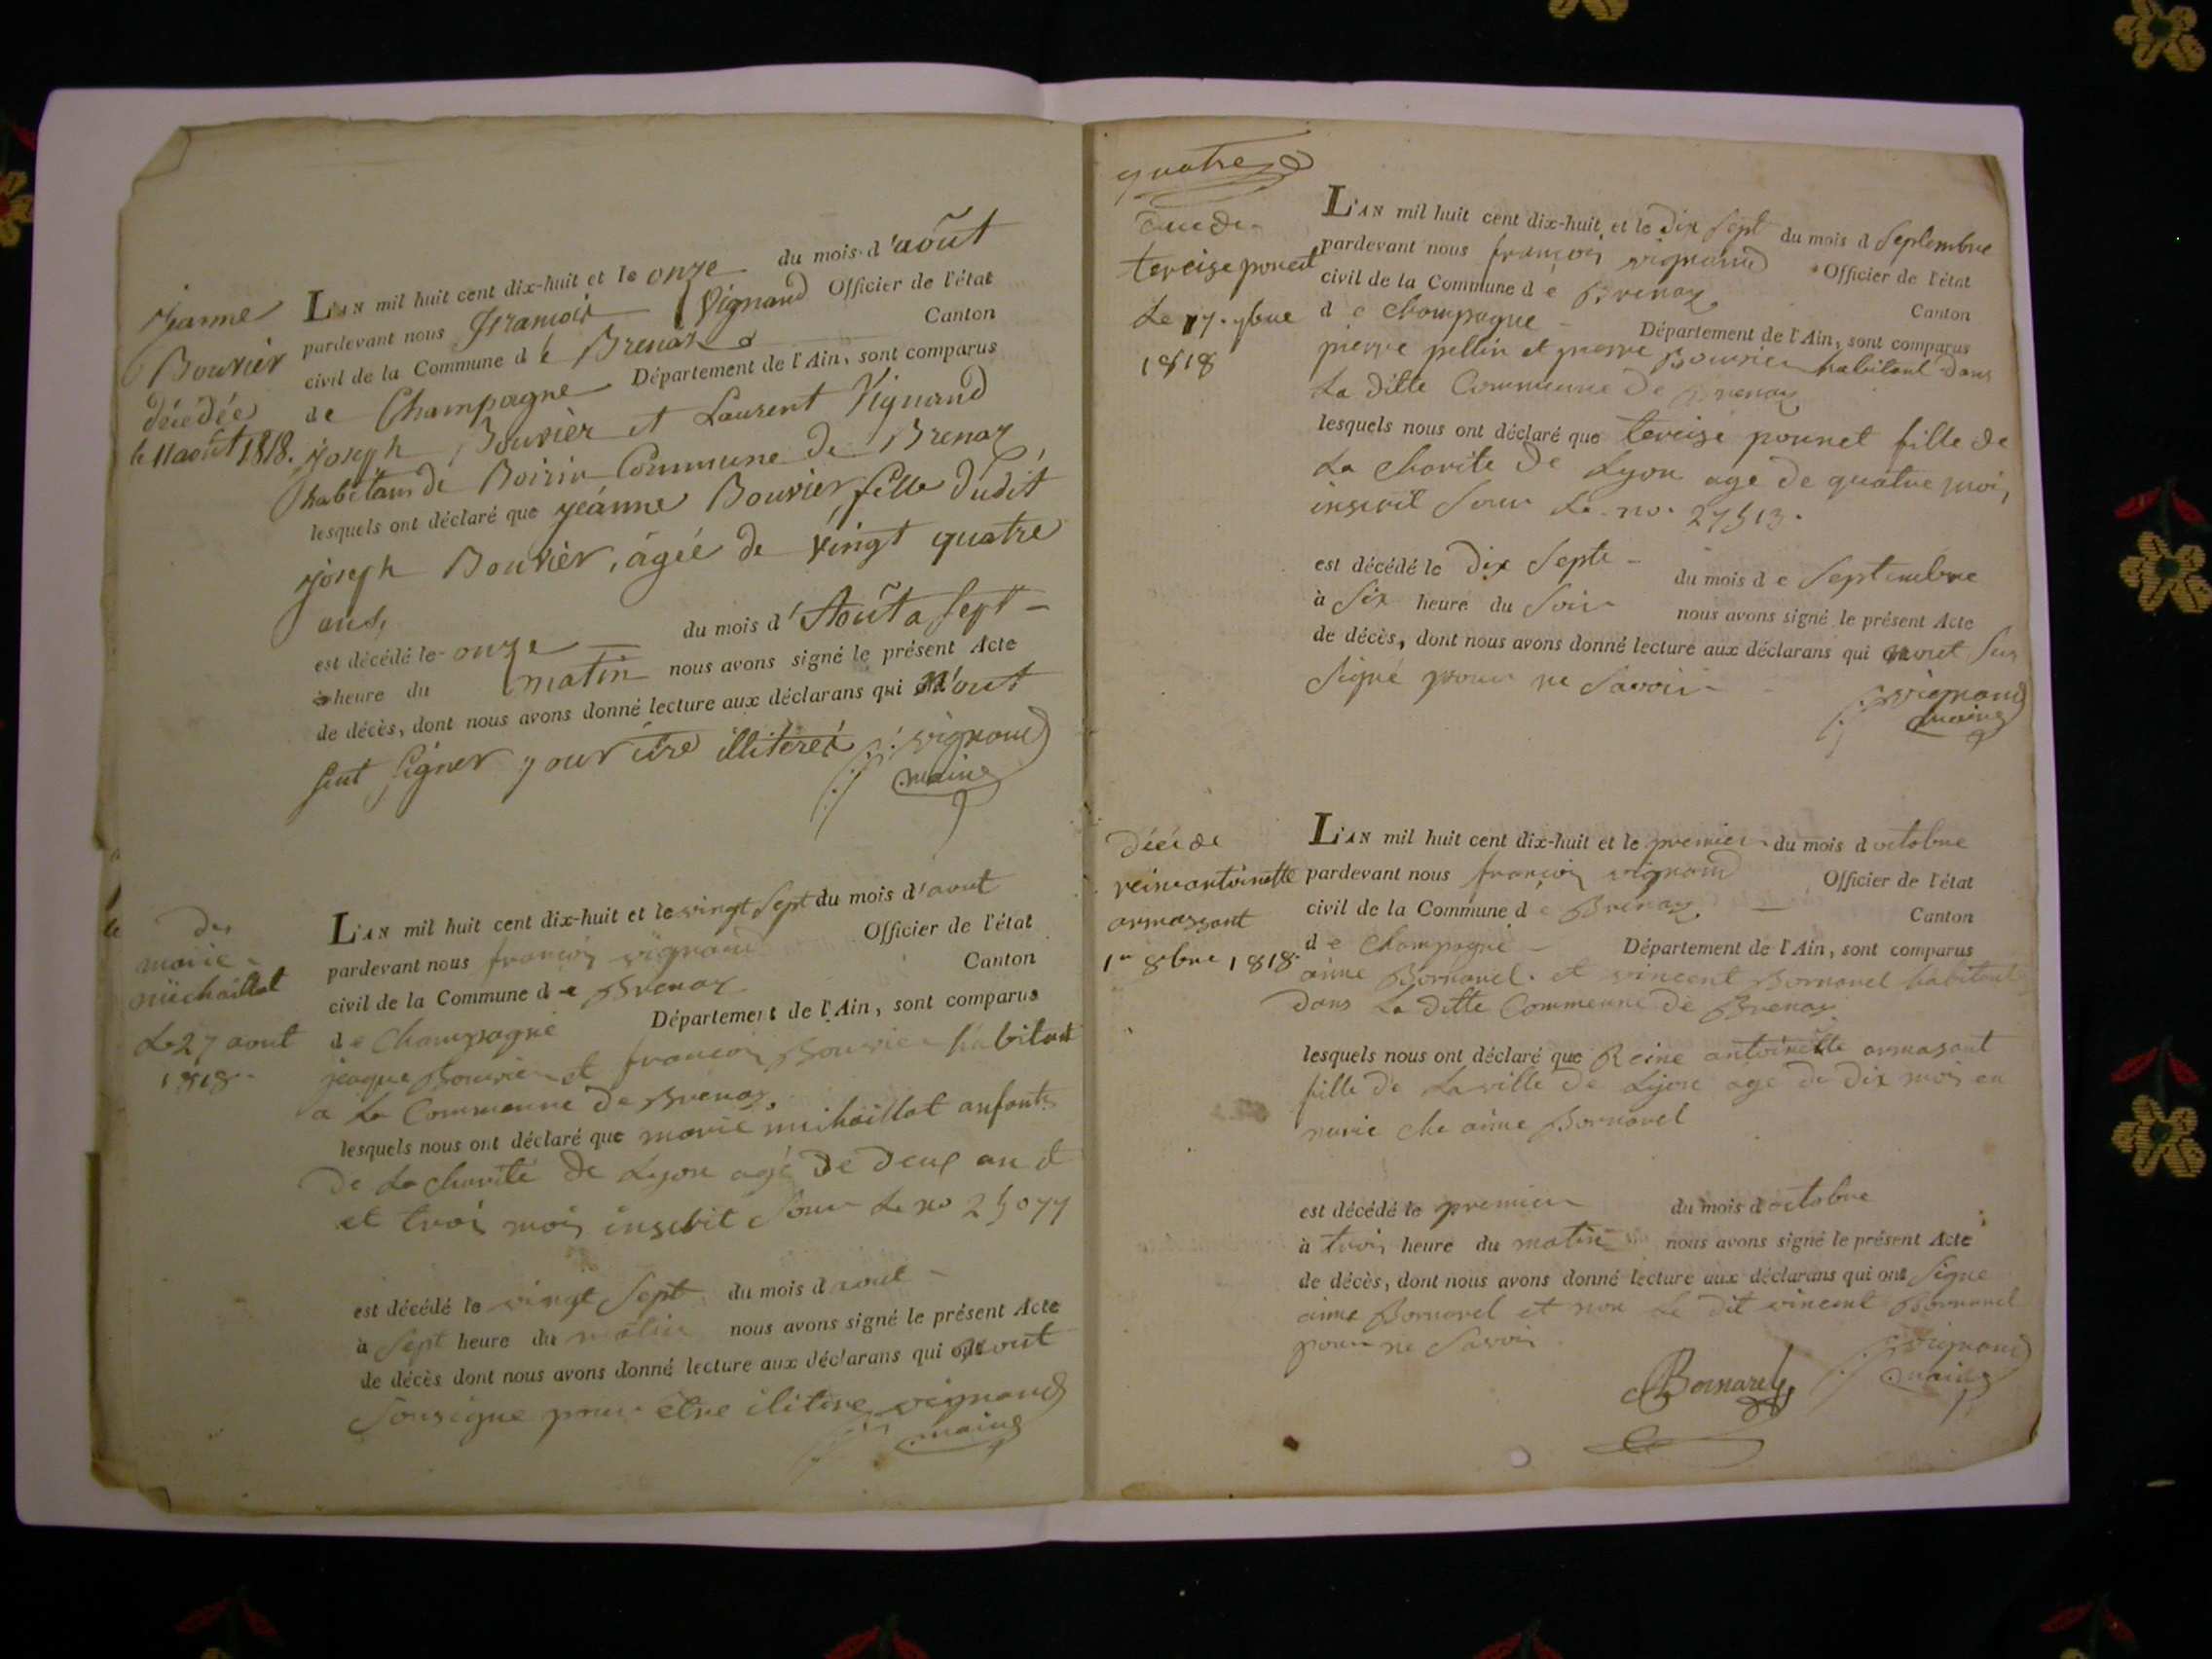 Jeanne
Bouvier
décédée
le 11 août 1818.
L'AN mil huit cent dix-huit et le onze du mois d'août
pardevant nous François Vignand Officier de l'état
civil de la Commune d e Brenaz Canton
de Champagne Département de l'Ain, sont comparus
joseph Bouvier et Laurent Vignand
habitans de Commune de Brenaz
lesquels ont déclaré que jeanne Bouvier, fille dudit
joseph Bouvier, âgée de vingt quatre
ans,
est décédé le onze du mois d'Août a sept
heure du matin nous avons signé le présent Acte
de décès, dont nous avons donné lecture aux déclarans qui n'ont
signer pour être illiteré vignand
maire
de
marie
michaillat
Le 27 aout
1818
L'AN mil huit cent dix-huit et le vingt sept du mois d'aout
pardevant nous françois vignand Officier de l'état
civil de la Commune d e Brenaz Canton
d e Champagne Département de l'Ain, sont comparus
jaque Bouvier et françois Bouvier habitant
a la Commune de Brenaz,
lesquels nous ont déclaré que marie michaillat anfant
De La charite de Lyon agé de deux an et
et trois mois inscrit sour Le no 25077
est décédé le vingt sept du mois d aout
à sept heure du matin nous avons signé le présent Acte
de décès dont nous avons donné lecture aux déclarans qui n'ont
sousigne pour etre ilitere vignand
maire
quatre
décéde
tereise ponnet
Le 17. 7bre
1818
L'AN mil huit cent dix-huit et le dix sept du mois d septembre
pardevant nous françois vignand Officier de l'état
civil de la Commune d e Brenaz Canton
d e Champagne Département de l'Ain, sont comparus
pierre pellin et pierre Bouvier habitant dans
La ditte Commune de Brenaz
lesquels nous ont déclaré que tereise ponnet fille de
La charite de Lyon age de quatre moi,
inscrit sour Le no. 27513.
est décédé le dix septe du mois d e septembre
à six heure du soir nous avons signé le présent Acte
de décès, dont nous avons donné lecture aux déclarans qui n'ont sus
signé pour ne savoir
vignand
maire
décéde
reine antoinette
armassant
1er 8bre 1818.
L'AN mil huit cent dix-huit et le premier du mois d octobre
pardevant nous françois vignand Officier de l'état
civil de la Commune d e Brenaz Canton
d e Champagne Département de l'Ain, sont comparus
aime Bornarel et vincent Bornarel habitant
dans La ditte Commune de Brenaz
lesquels nous ont déclaré que Reine antoinette armasant
fille de La ville de Lyon age de dix mois en
nurie che aime Bornarel
est décédé le premier du mois d octobre
à trois heure du matin nous avons signé le présent Acte
de décès, dont nous avons donné lecture aux déclarans qui ont signe
aime Bornarel et non Le dit vincent Bornarel
pour ne savoir
Bornarel vignand
maire